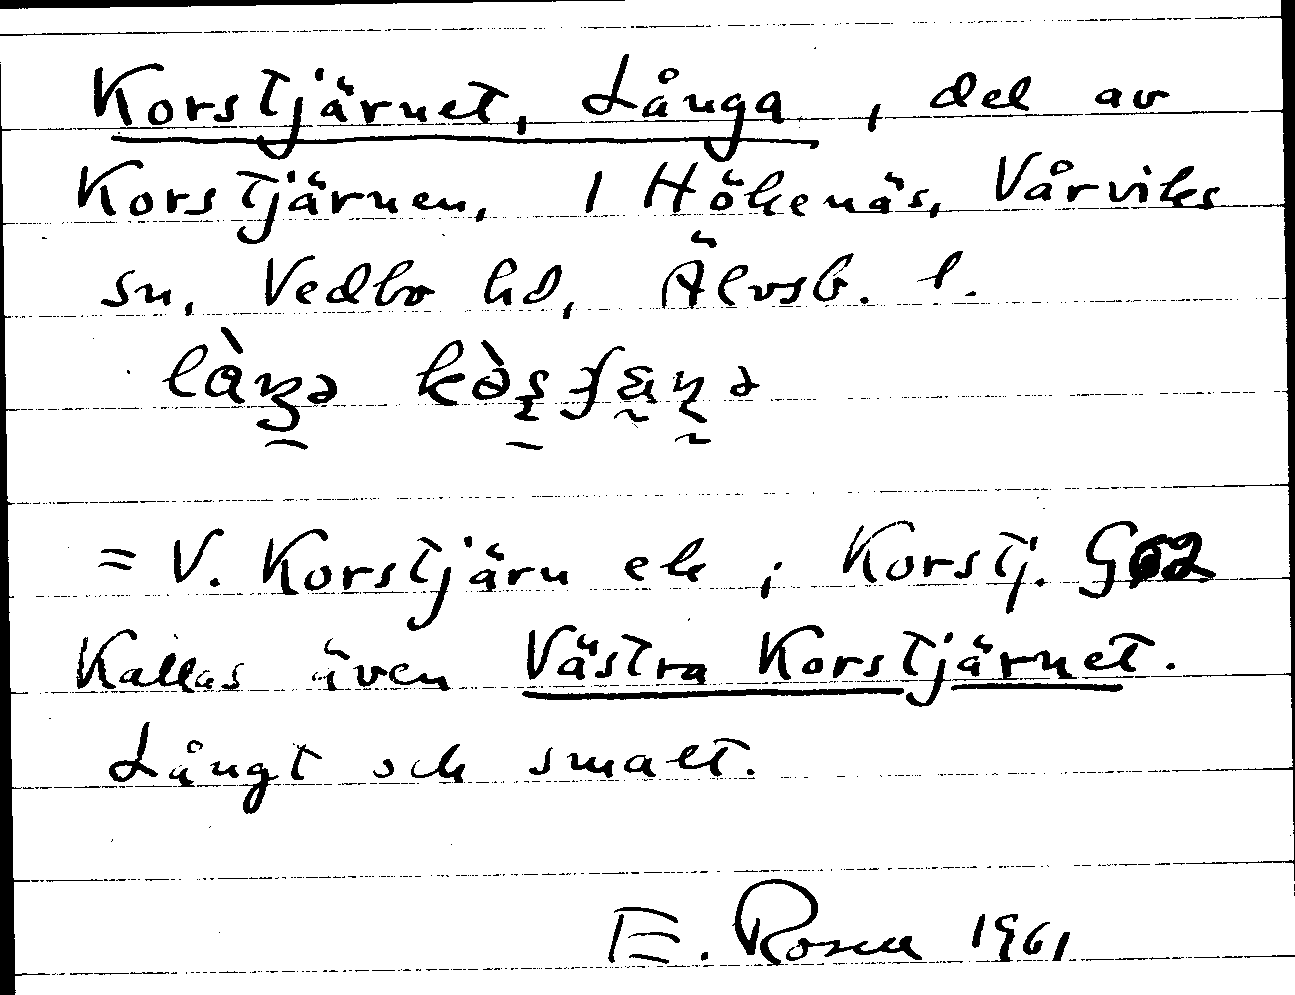 Korstjärnet, Långa, del av
Korstjärnen, 1 Hökenäs, Vårviks
sn, Vedbo hd, Älvsb. l.
= V. Korstjärn ek ; Korstj. G62
Kallas även Västra Korstjärnet.
Långt och smalt.
E. Rosell 1961